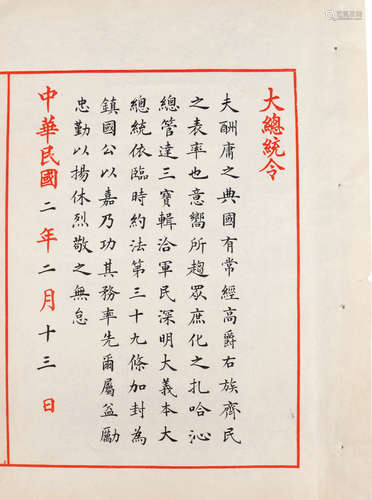 大總統令
夫酬庸之典國有常經高爵右族齊民
之表率也意嚮所趨眾庶化之扎哈沁
總管達三寶輯洽軍民深明大義本大
總統依臨時約法第三十九條加封為
鎮國公以嘉乃功其務率先爾屬益勵
忠勤以揚休烈敬之無怠
中華民國二年二月十三日